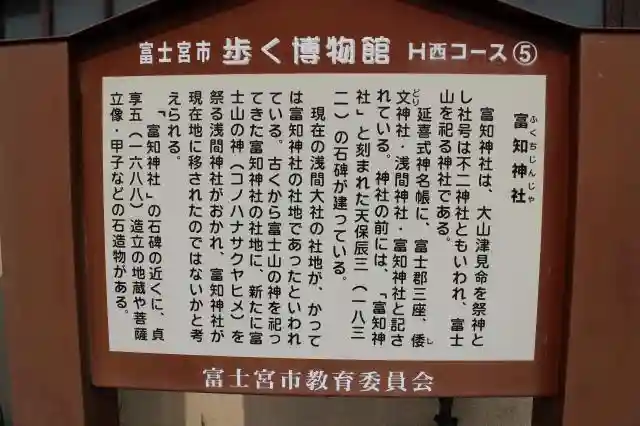 富士宮市 歩く博物館 H西コース⑤
富知神社
ふくちじんじゃ
富知神社は、大山津見命を祭神と
し社号は不二神社ともいわれ、富士
山を祀る神社である。
延喜式神名帳に、富士郡三座、倭
文神社・浅間神社・富知神社と記さ
しどり
れている。神社の前には、「富知神
社」と刻まれた天保辰三(一八三
二)の石碑が建っている。
現在の浅間大社の社地が、かつて
は富知神社の社地であったといわれ
ている。古くから富士山の神を祀っ
てきた富知神社の社地に、新たに富
士山の神(コノハナサクヤヒメ)を
祭る浅間神社がおかれ、富知神社が
現在地に移されたのではないかと考
えられる。
「富知神社」の石碑の近くに、貞
享五(一六八八)造立の地蔵や菩薩
立像・甲子などの石造物がある。
富士宮市教育委員会